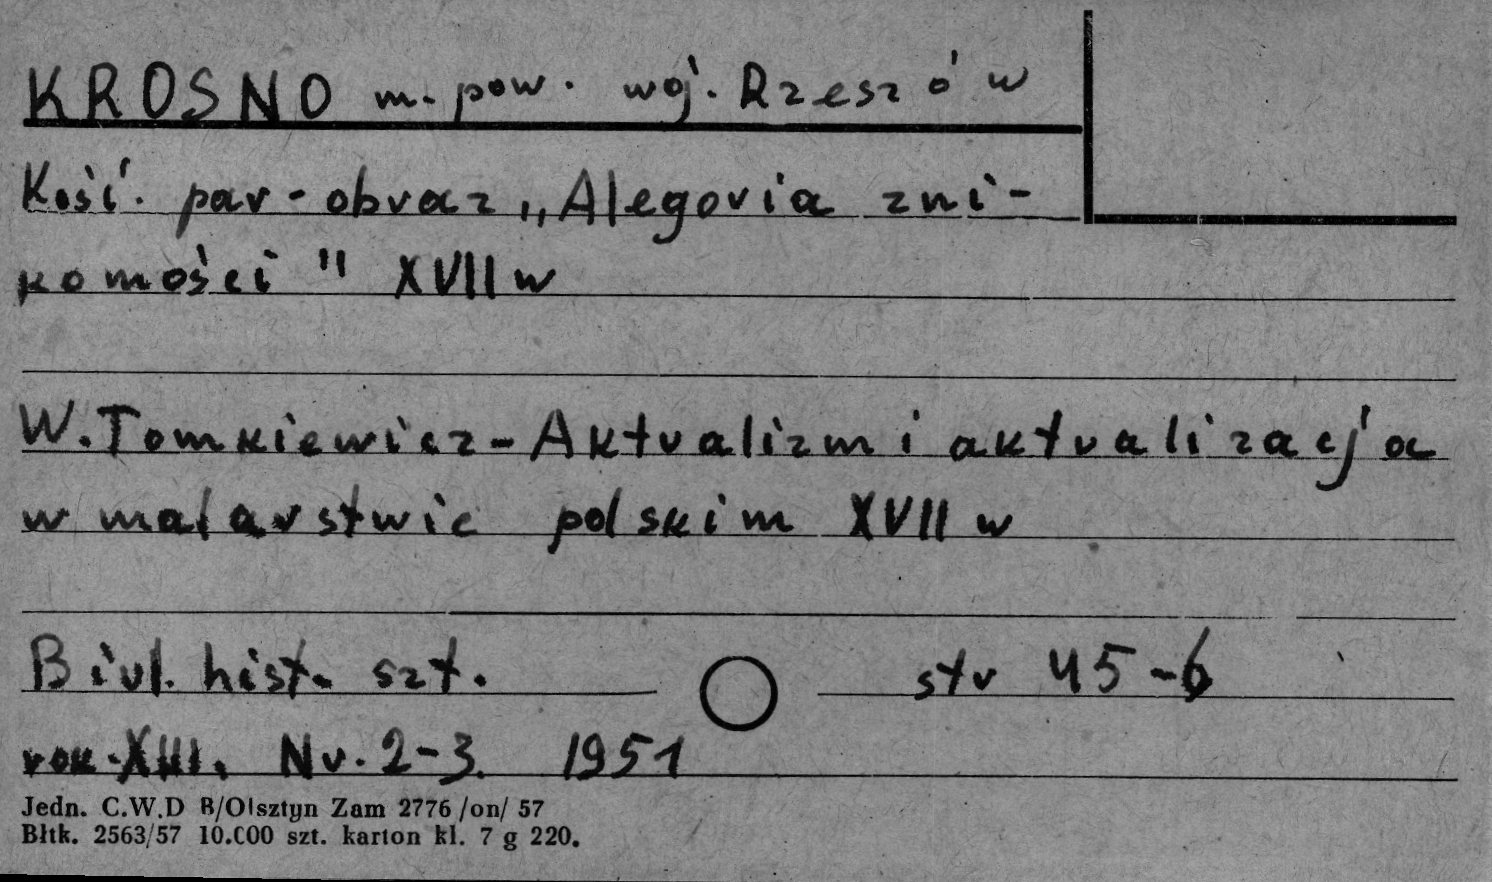 KROSNO m. pow. woj. Rzeszów
Kość. par - obraz „Alegoria zni-
komości" XVII w
W. Tomkiewicz - Aktualizm i aktualizacja
w malarstwie polskim XVII w
Biul. hist. szt. str 45-6
rok XIII. Nr. 2-3. 1951
Jedn. C.W.D B/Olsztyn Zam 2776 /on/ 57
Błtk. 2563/57 10.000 szt. karton kl. 7 g 220.